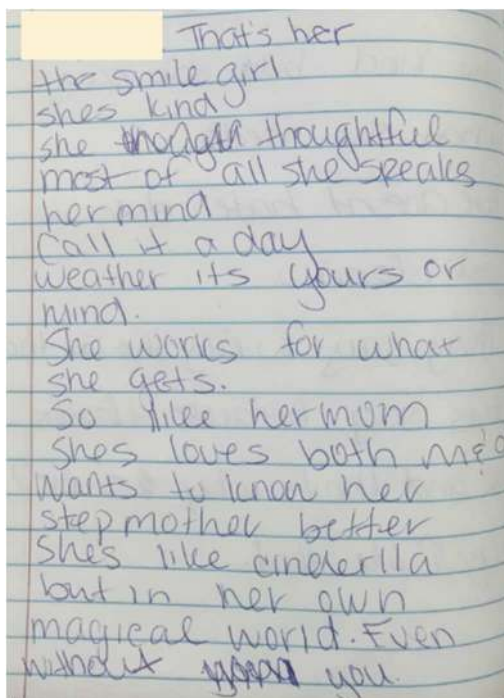 That's her
the smile girl
shes kind
she thoughtful
most of all she speaks
her mind
Call it a day
weather its yours or
mind.
She works for what
she gets.
So like her mom
Shes loves both m&d
Wants to know her
step mother better
She's like cinderlla
but in her own
magical world. Even
without you.